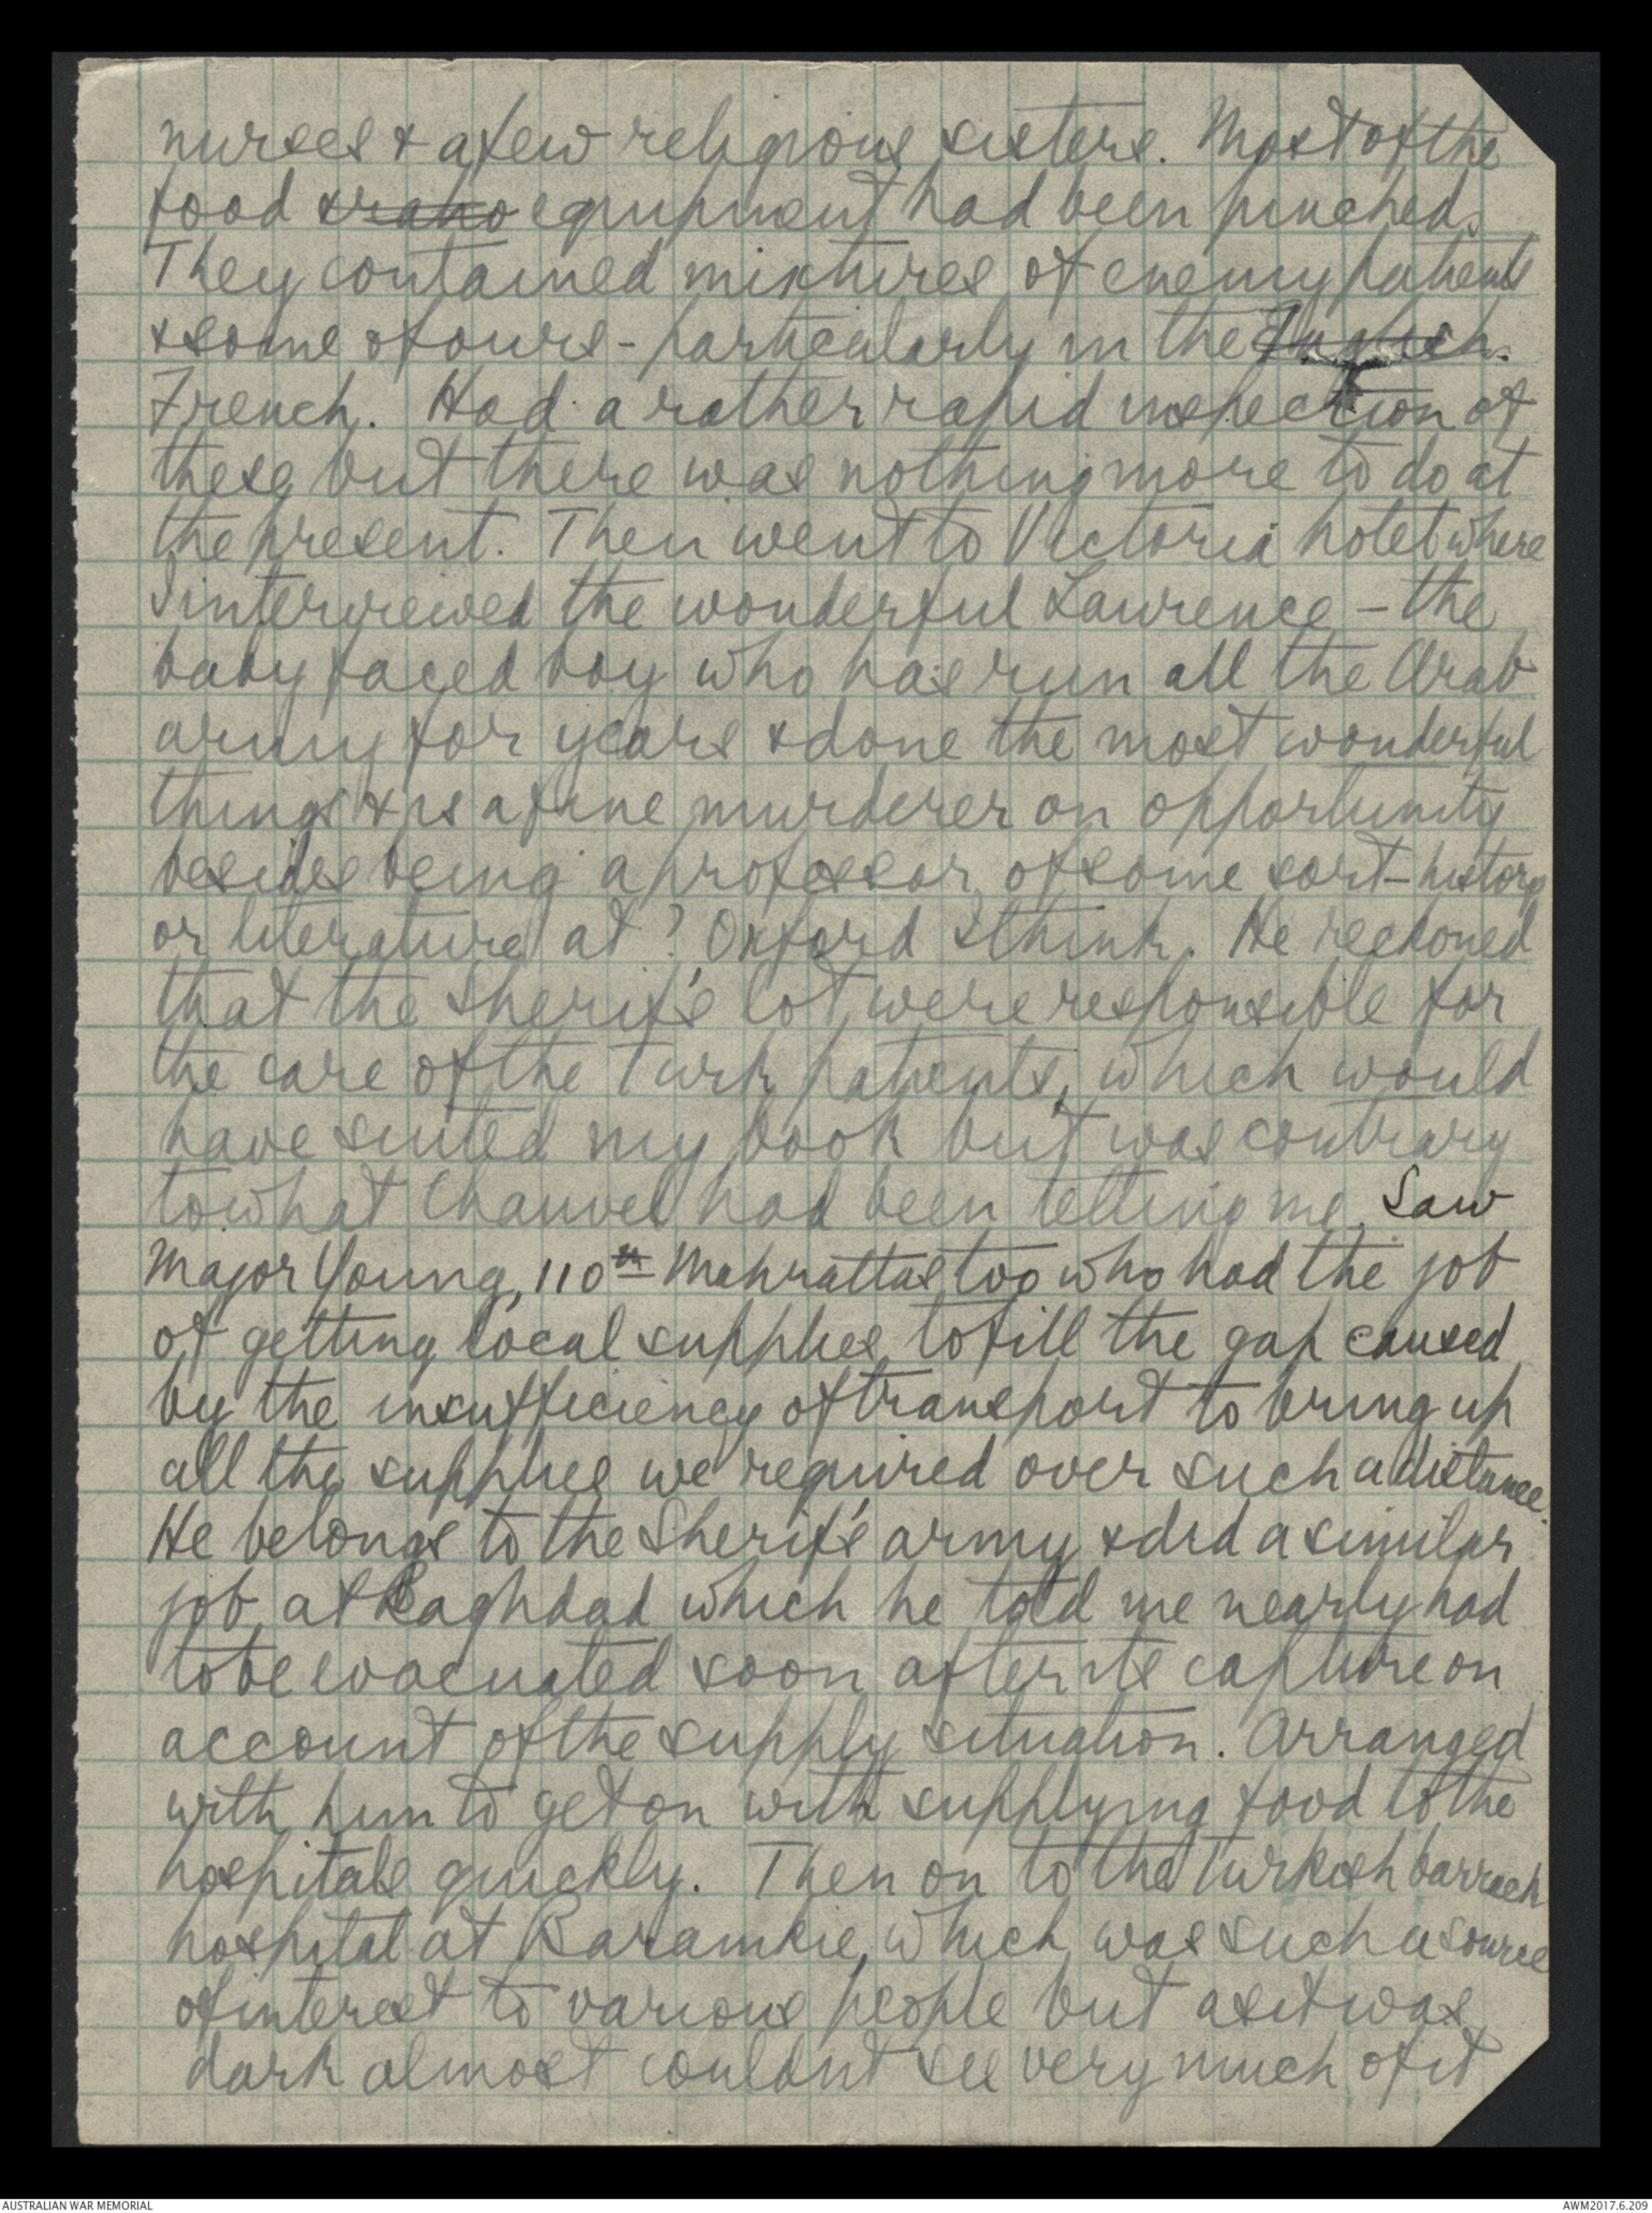 nurses & a few religious sisters. Most of the
food & equipment had been pinched.
They contained mixtures of enemy patients
& some of ours - particularly in the English.
French. Had a rather rapid inspection of
these but there was nothing more to do at
the present. Then went to Victoria hotel where
I interviewed the wonderful Lawrence - the
baby faced boy who has run all the Arab
army for years & done the most wonderful
things & is a fine murderer on opportunity
besides being a professor of some sort - history
or literature at ? Oxford I think. He reckoned
that the Sherif's lot were responsible for
the care of the Turk patients, which would
have suited my book but was contrary
to what Chauvel had been telling me. Saw
Major Young, 110th Mahrattas too who had the job
of getting local supplies to fill the gap caused
by the insufficiency of transport to bring up
all the supplies we required over such a distance.
He belongs to the Sherif's army & did a similar
job at Baghdad which he told me nearly had
to be evacuated soon after its capture on
account of the supply situation. Arranged
with him to get on with supplying food to the
hospitals quickly. Then on to the Turkish barrack
hospital at Baramkie, which was such a source
of interest to various people but as it was
dark almost couldnt see very much of it
AUSTRALIAN WAR MEMORIAL
AWM2017.6.209